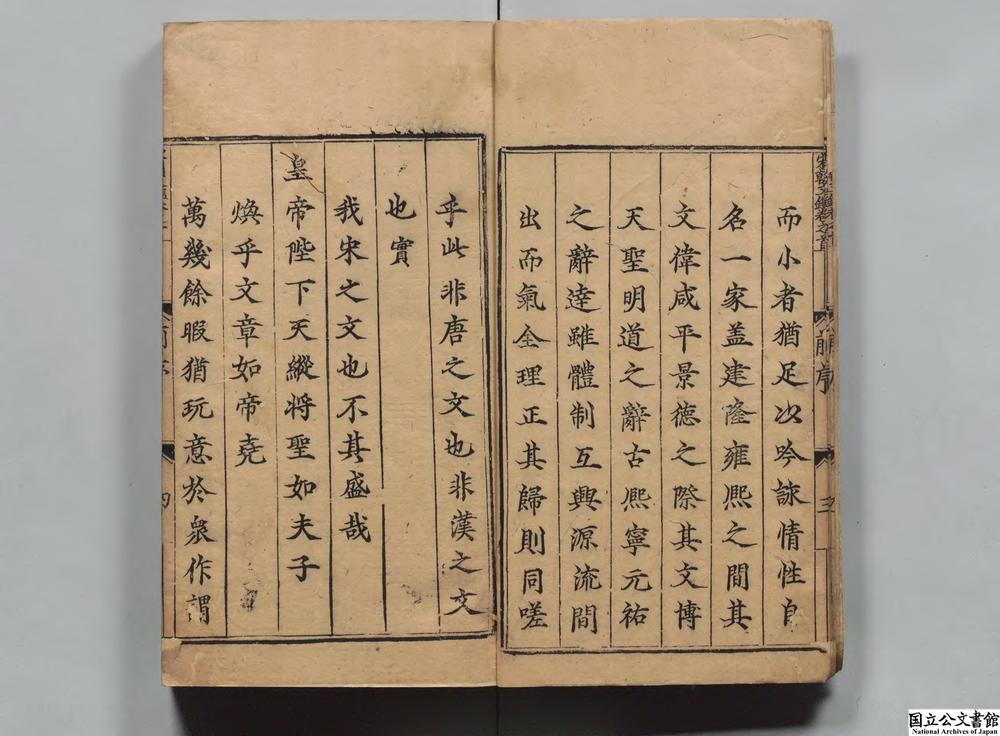 而小者猶足以吟詠情性自
名一家盖建隆雍熙之間其
文偉咸平景德之際其文博
天聖明道之辭古熙寧元祐
之辭達雖體制互興源流間
出而氣全理正其歸則同嗟
乎此非唐之文也非漢之文
也實
我宋之文也不其盛哉
皇帝陛下天縱將聖如夫子
煥乎文章如帝堯
萬幾餘暇猶玩意於衆作謂
前序
四
国立公文書館
National Archives of Japan